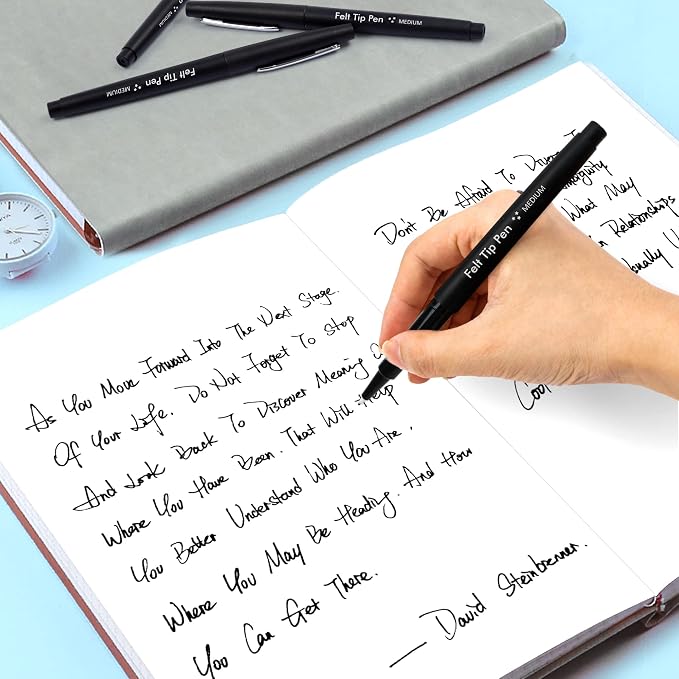 Felt Tip Pen MEDIUM
Felt Tip Pen MEDIUM
Felt Tip Pen MEDIUM
As You Move Forward Into The Next Stage.
Of Your Life. Do Not Forget To Stop
And Look Back To Discover Meaning
Where You Have Been. That Will Help
You Better Understand Who You Are.
Where You May Be Heading. And How
You Can Get There.
— David Steinbrenner.
Don't Be Afraid To
What May
Relationships